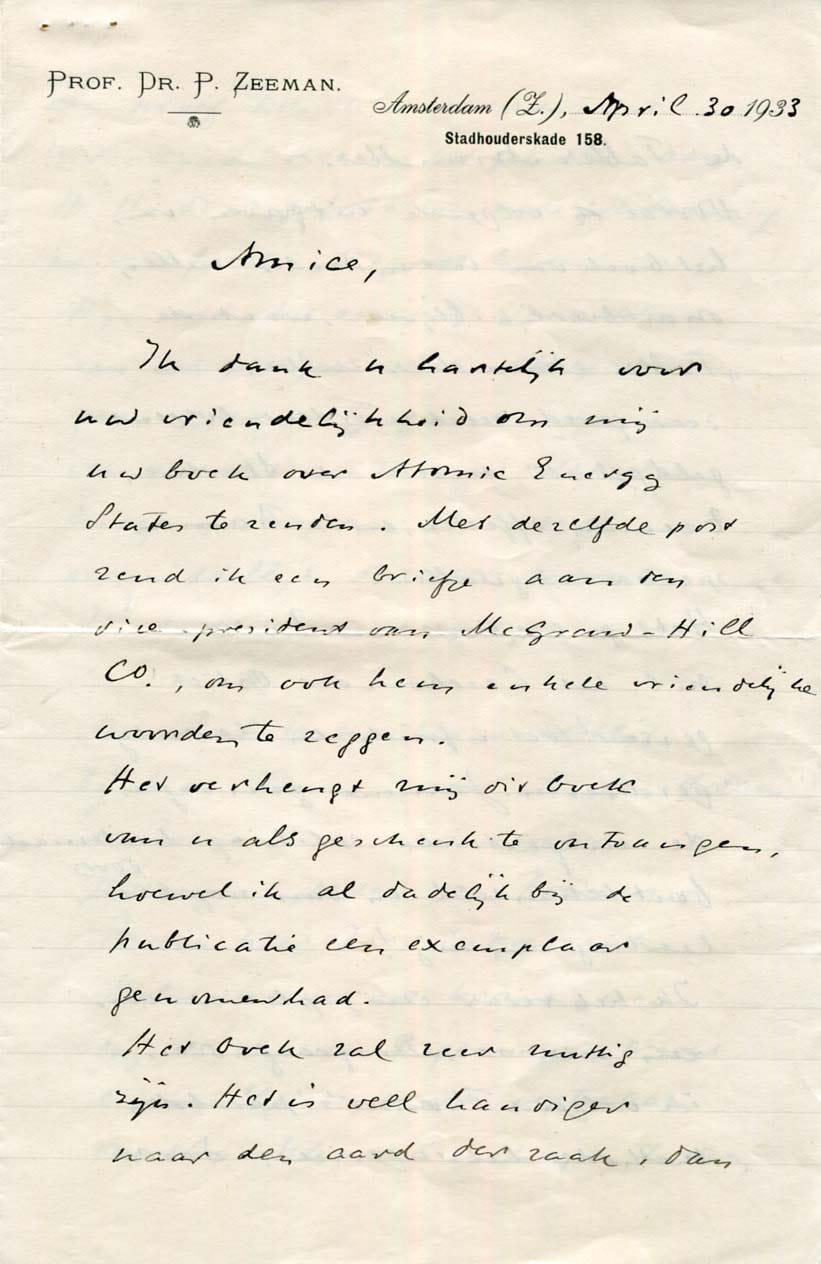 PROF. DR. P. ZEEMAN.
Amsterdam (Z.), April 30 1933
Stadhouderskade 158.
Amice,
Ik dank u hartelijk voor
uw vriendelijkheid om mij
uw boek over Atomic Energy
States te zenden. Met dezelfde post
zend ik een briefje aan den
vice-president van McGraw-Hill
Co., om ook hem enkele vriendelijke
woorden te zeggen.
Het verheugt mij dit boek
van u als geschenk te ontvangen,
hoewel ik al dadelijk bij de
publicatie een exemplaar
genomen had.
Het boek zal zeer nuttig
zijn. Het is veel handiger
naar den aard der zaak, dan